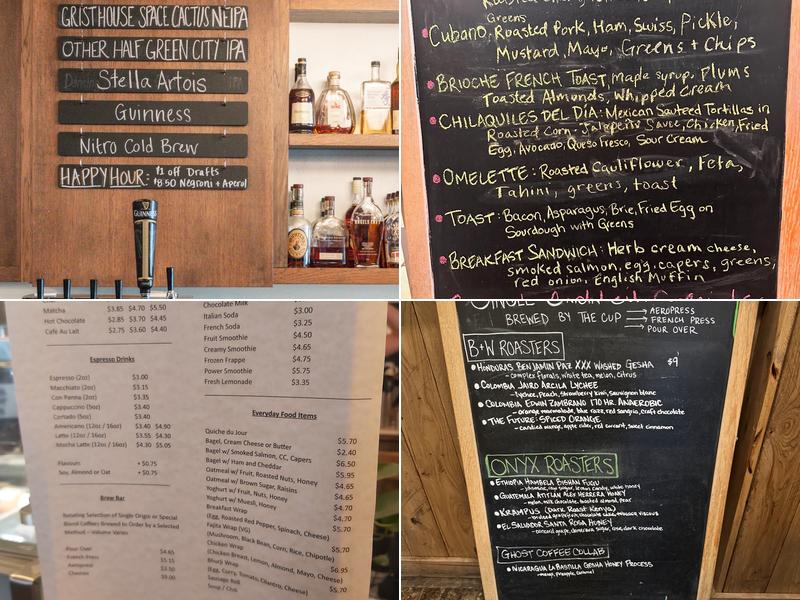 GRISTHOUSE SPACE CACTUS NEIPA
OTHER HALF GREEN CITY IPA
Stella Artois
Guinness
Nitro Cold Brew
HAPPY HOUR: $1 off Drafts
$8.50 Negroni + Aperol
GUINNESS
Greens
Cubano: Roasted Pork, Ham, Swiss, Pickle,
Mustard, Mayo, Greens + Chips
BRIOCHE FRENCH TOAST, maple syrup, Plums
Toasted Almonds, Whipped Cream
CHILAQUILES DEL DÍA: Mexican Sauteed Tortillas in
Roasted Corn-Jalapeño Sauce, Chicken, Fried
Egg, Avocado, Queso Fresco, Sour Cream
OMELETTE: Roasted Cauliflower, Feta,
Tahini, greens, toast
TOAST: Bacon, Asparagus, Brie, Fried Egg on
Sourdough with Greens
BREAKFAST SANDWICH: Herb cream cheese,
smoked salmon, egg, capers, greens,
red onion, English Muffin
Matcha $3.85 $4.70 $5.50
Hot Chocolate $2.85 $3.70 $4.45
Café Au Lait $2.75 $3.60 $4.40
Espresso Drinks
Espresso (2oz) $3.00
Macchiato (2oz) $3.15
Con Panna (2oz) $3.35
Cappuccino (5oz) $3.40
Cortado (5oz) $3.40
Americano (12oz / 16oz) $3.40 $4.90
Latte (12oz / 16oz) $3.55 $4.30
Mocha Latte (12oz / 16oz) $4.30 $5.05
Flavours + $0.75
Soy, Almond or Oat + $0.75
Brew Bar
Rotating Selection of Single Origin or Special
Blend Coffees Brewed to Order by a Selected
Method – Volume Varies
Pour Over $4.65
French Press $4.15
Aeropress $3.50
Chemex $9.00
Chocolate Milk
Italian Soda $3.00
French Soda $3.25
Fruit Smoothie $4.50
Creamy Smoothie $4.65
Frozen Frappe $4.75
Power Smoothie $5.75
Fresh Lemonade $3.35
Everyday Food Items
Quiche du Jour $5.70
Bagel, Cream Cheese or Butter $2.40
Bagel w/ Smoked Salmon, CC, Capers $6.50
Bagel w/ Ham and Cheddar $5.95
Oatmeal w/ Fruit, Roasted Nuts, Honey $4.65
Oatmeal w/ Brown Sugar, Raisins $4.65
Yoghurt w/ Fruit, Nuts, Honey $4.70
Yoghurt w/ Muesli, Honey
Breakfast Wrap
(Egg, Roasted Red Pepper, Spinach, Cheese) $5.70
Fajita Wrap (VG)
(Mushroom, Black Bean, Corn, Rice, Chipotle) $5.70
Chicken Wrap
(Chicken Breast, Lemon, Almond, Mayo, Cheese) $6.95
Bhurji Wrap
(Egg, Curry, Tomato, Cilantro, Cheese) $5.70
Sausage Roll
Soup / Chili
BREWED BY THE CUP → AEROPRESS
→ FRENCH PRESS
→ POUR OVER
B+W ROASTERS
HONDURAS BENJAMIN PAZ XXX WISHED GESHA $9
- complex florals, white tea, melon, citrus
COLOMBIA JAIRO ARCILA LYCHEE
- lychee, peach, strawberry kiwi, sauvignon blanc
COLOMBIA EDWIN ZAMBRANO 170 HR. ANAEROBIC
- orange marmalade, blue razz, red sangria, craft chocolate
THE FUTURE: SPICED ORANGE
- candied mango, apple cider, red currant, sweet cinnamon
ONYX ROASTERS
ETHIOPIA HAMBELA BISHAN FUGU
GUATEMALA ATITLAN ALEX HERRERA HONEY
- melon, milk chocolate, toasted almond, pear
KRAMPUS (Dark Roast Kenya)
EL SALVADOR SANTA ROSA HONEY
- concord grape, demerara sugar, rose, dark chocolate
GHOST COFFEE COLLAB
NICARAGUA LA BASTILLA GESHA HONEY PROCESS
- mango, pineapple, caramel